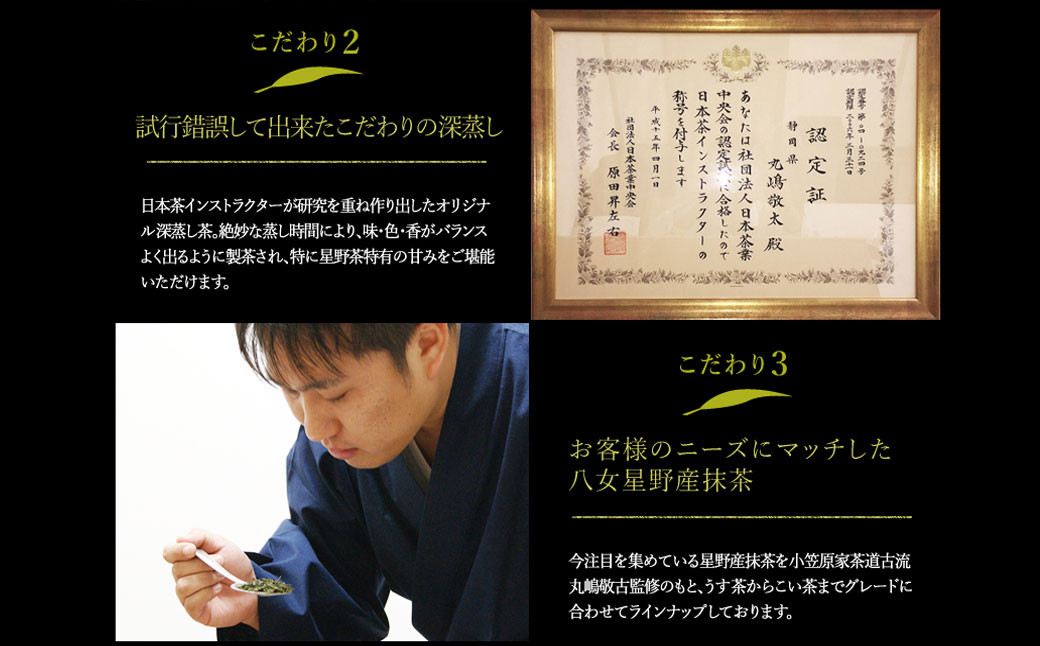 こだわり2
試行錯誤して出来たこだわりの深蒸し
日本茶インストラクターが研究を重ね作り出したオリジナ
ル深蒸し茶。絶妙な蒸し時間により、味・色・香がバランス
よく出るように製茶され、特に星野茶特有の甘みをご堪能
いただけます。
認定証
静岡県
丸嶋敬太 殿
あなたは社団法人日本茶業
中央会の認定試験に合格したので
日本茶インストラクターの
称号を付与します
平成十五年四月一日
社団法人日本茶業中央会
会長 原田昇左右
こだわり3
お客様のニーズにマッチした
八女星野産抹茶
今注目を集めている星野産抹茶を小笠原家茶道古流
丸嶋敬古監修のもと、うす茶からこい茶までグレードに
合わせてラインナップしております。